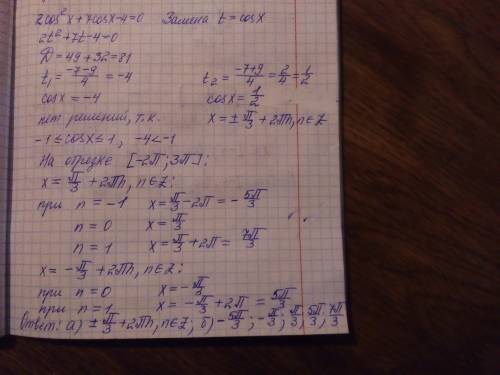 2cos²x+7cosx-4=0   Замена t=cosx
2t²+7t-4=0
D=49+32=81
t₁=(-7-9)/4=-4   t₂=(-7+9)/4=2/4=1/2
cosx=-4   cosx=1/2
нет решений, т.к.   x=±π/3+2πn, n∈Z
-1≤cosx≤1, -4<-1
На отрезке [-2π; 3π]:
x=π/3+2πn, n∈Z:
при n=-1   x=π/3-2π=-5π/3
n=0   x=π/3
n=1   x=π/3+2π=7π/3
x=-π/3+2πn, n∈Z:
при n=0   x=-π/3
при n=1   x=-π/3+2π=5π/3
Ответ: а) ±π/3+2πn, n∈Z; б) -5π/3; -π/3; π/3; 5π/3; 7π/3